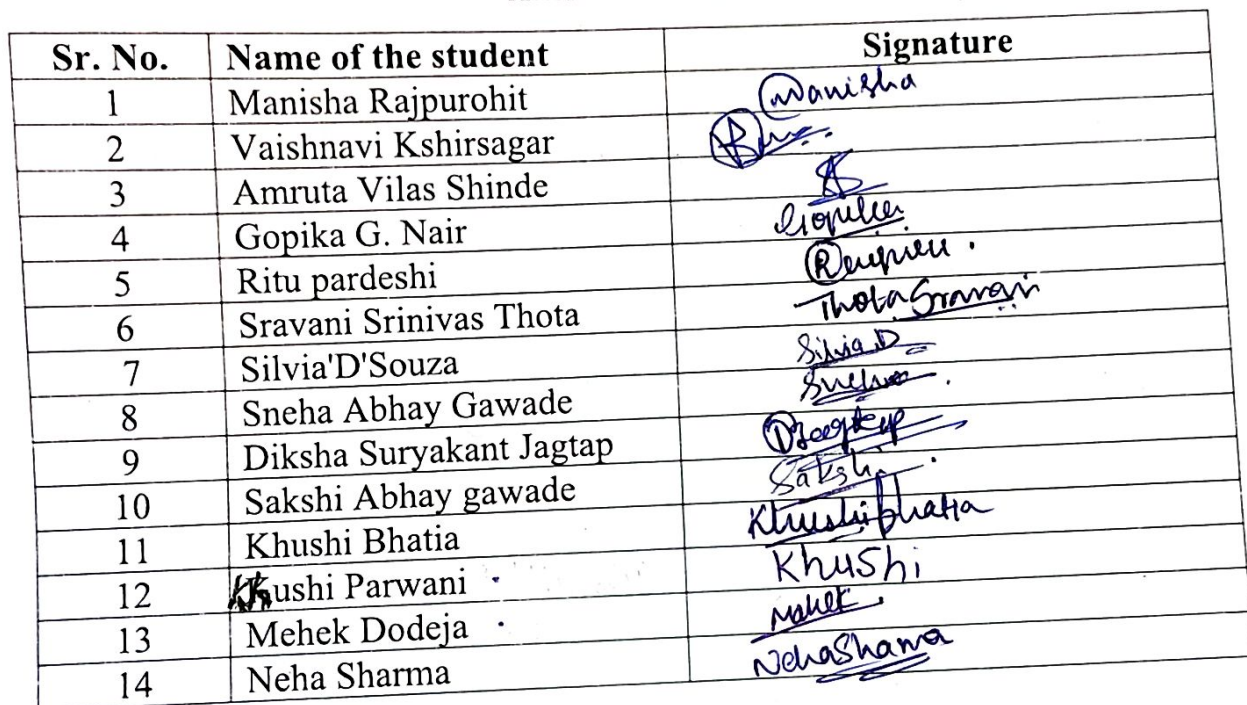 Sr. No. Name of the student Signature
1 Manisha Rajpurohit Manisha
2 Vaishnavi Kshirsagar
3 Amruta Vilas Shinde
4 Gopika G. Nair Gopika
5 Ritu pardeshi
6 Sravani Srinivas Thota Thota Sravani
7 Silvia'D'Souza Silvia D
8 Sneha Abhay Gawade Sneha
9 Diksha Suryakant Jagtap DJagtap
10 Sakshi Abhay gawade Sakshi
11 Khushi Bhatia Khushi Bhatia
12 Khushi Parwani Khushi
13 Mehek Dodeja Mehek
14 Neha Sharma Neha Sharma